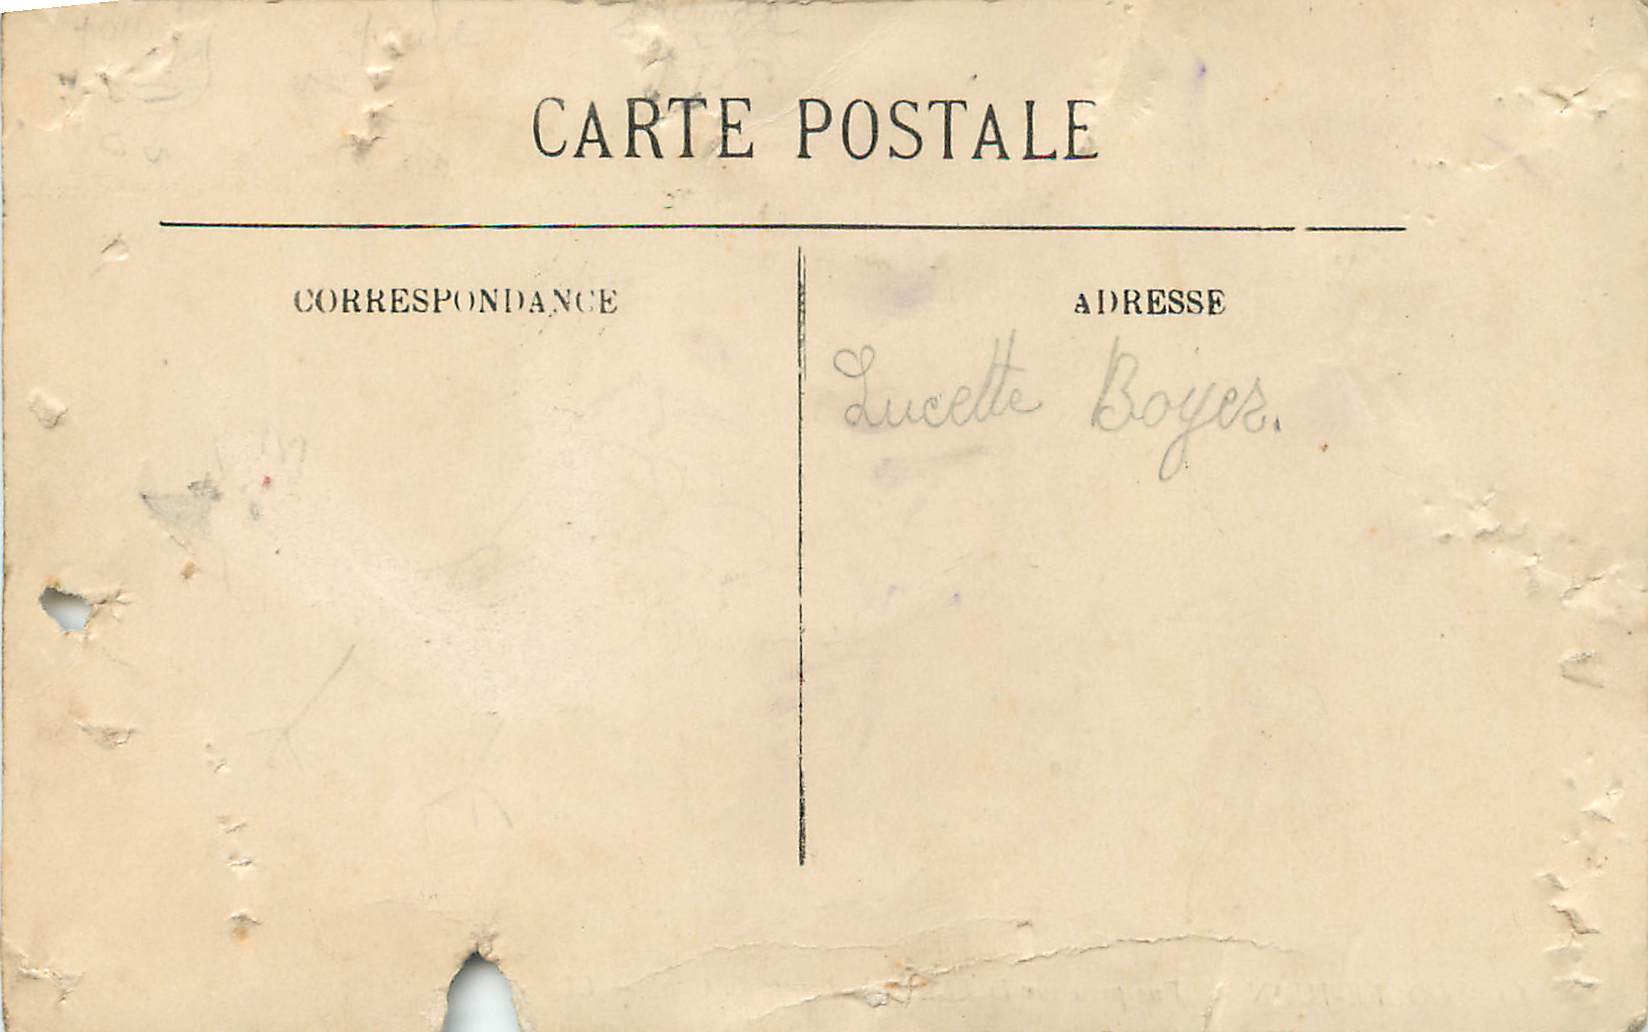 CARTE POSTALE
CORRESPONDANCE
ADRESSE
Lucette Boyer.